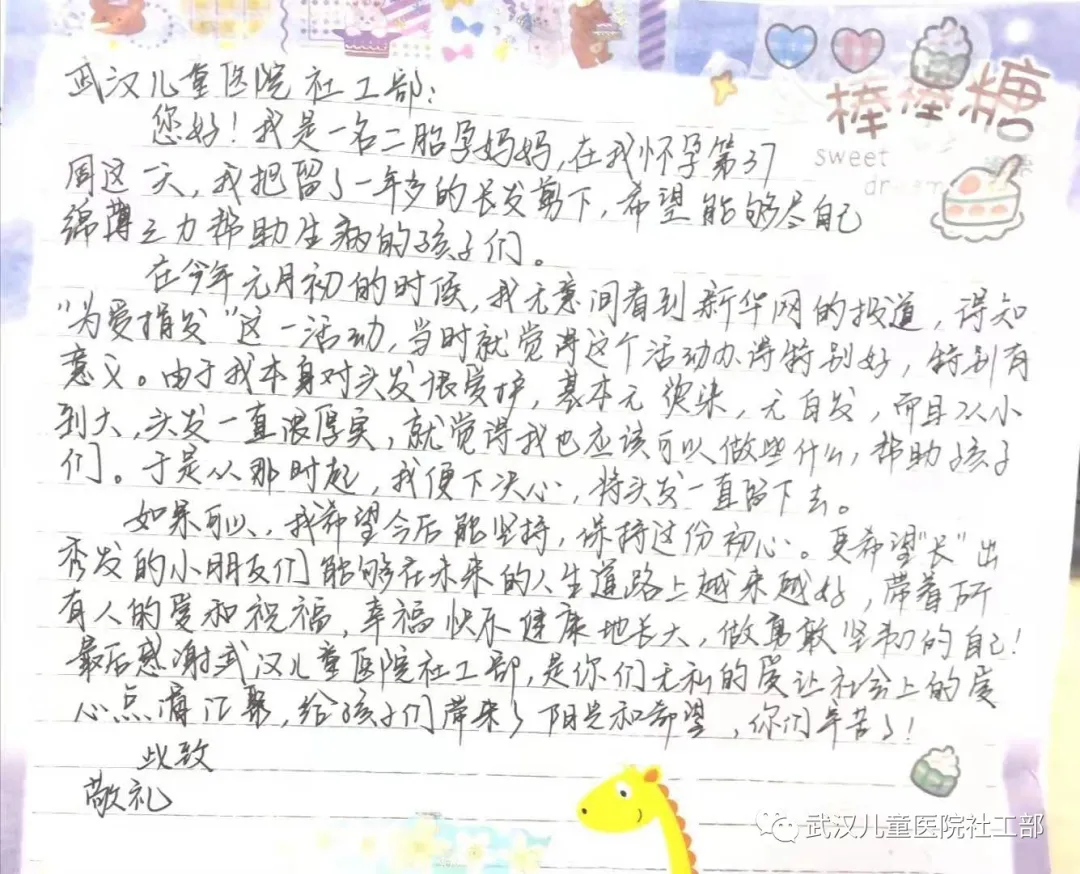 武汉儿童医院社工部：
您好！我是一名二胎孕妈妈，在我怀孕第37
周这一天，我把留了一年多的长发剪下，希望能够尽自己
绵薄之力帮助生病的孩子们。
在今年元月初的时候，我无意间看到新华网的报道，得知
“为爱捐发”这一活动，当时就觉得这个活动办得特别好，特别有
意义。由于我本身对头发很爱护，基本无烫染，无白发，而且从小
到大，头发一直浓厚实，就觉得我也应该可以做些什么，帮助孩子
们。于是从那时起，我便下决心，将头发一直留下去。
如果可以，我希望今后能坚持，保持这份初心。更希望“长”出
秀发的小朋友们能够在未来的人生道路上越来越好，带着所
有人的爱和祝福，幸福快乐健康地长大，做勇敢坚韧的自己！
最后感谢武汉儿童医院社工部，是你们无私的爱让社会上的爱
心点滴汇聚，给孩子们带来了阳光和希望，你们辛苦了！
此致
敬礼
棒棒糖
sweet
dream
武汉儿童医院社工部